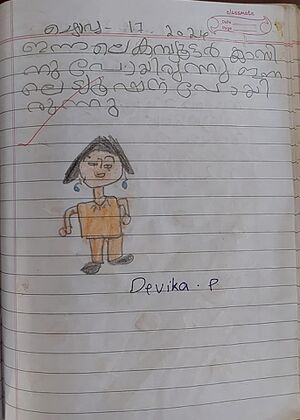 classmate
Date
Page
17. 2024
ഇന്നലെ കമ്പ്യൂട്ടർ ക്ലാസി
ന്നു പോയിരുന്നു ഇന്ന
ലെ ട്യൂഷന് പോയി
രുന്നു
Devika. P